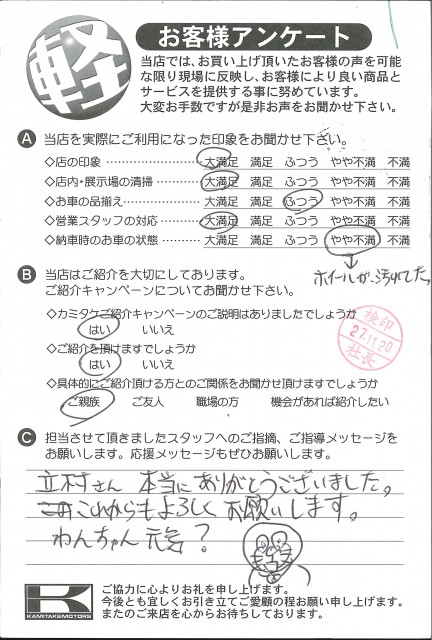 軽
お客様アンケート
当店では、お買い上げ頂いたお客様の声を可能
な限り現場に反映し、お客様により良い商品と
サービスを提供する事に努めています。
大変お手数ですが是非お声をお聞かせ下さい。
A 当店を実際にご利用になった印象をお聞かせ下さい。
◇店の印象 大満足 満足 ふつう やや不満 不満
◇店内・展示場の清掃 大満足 満足 ふつう やや不満 不満
◇お車の品揃え 大満足 満足 ふつう やや不満 不満
◇営業スタッフの対応 大満足 満足 ふつう やや不満 不満
◇納車時のお車の状態 大満足 満足 ふつう やや不満 不満
↓
ホイールが、汚れてた。
B 当店はご紹介を大切にしております。
ご紹介キャンペーンについてお聞かせ下さい。
◇カミタケご紹介キャンペーンのご説明はありましたでしょうか
はい いいえ
◇ご紹介を頂けますでしょうか
はい いいえ
検印
27.11.20
社長
◇具体的にご紹介頂ける方とのご関係をお聞かせ頂けますでしょうか
ご親族 ご友人 職場の方 機会があれば紹介したい
C 担当させて頂きましたスタッフへのご指摘、ご指導メッセージを
お願いします。応援メッセージもぜひお願いします。
立村さん 本当にありがとうございました。
これからもよろしくお願いします。
わんちゃん元気?
K
KAMITAKEMOTORS
ご協力に心よりお礼を申し上げます。
今後とも宜しくお引き立てご愛顧の程お願い申し上げます。
またのご来店を心からお待ちしております。